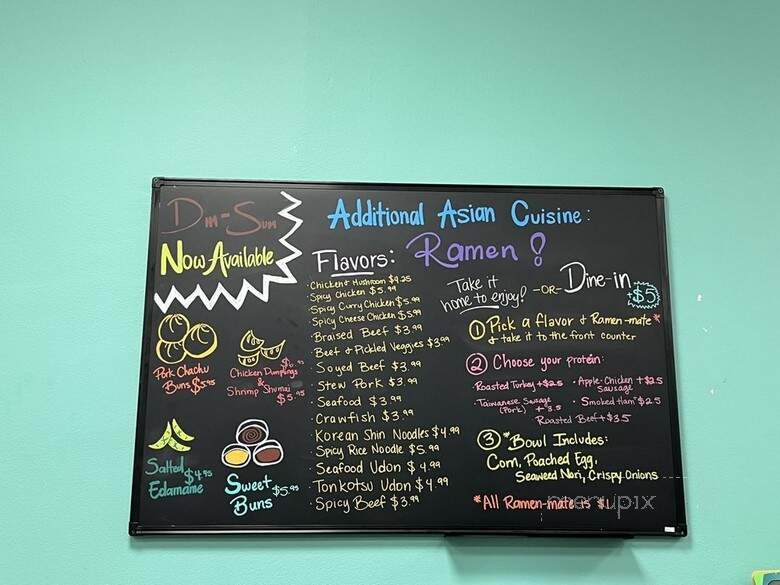 Dim-Sum
Now Available
Pork Chachu
Buns $5.95
Chicken Dumplings $6.95
&
Shrimp Shumai
$5.95
Salted
Edamame $4.95
Sweet
Buns $5.95
Additional Asian Cuisine:
Flavors: Ramen!
· Chicken & Mushroom $4.25
· Spicy Chicken $5.99
· Spicy Curry Chicken $5.99
· Spicy Cheese Chicken $5.99
· Braised Beef $3.99
· Beef & Pickled Veggies $3.99
· Soyed Beef $3.99
· Stew Pork $3.99
· Seafood $3.99
· Crawfish $3.99
· Korean Shin Noodles $4.99
· Spicy Rice Noodle $5.99
· Seafood Udon $4.99
· Tonkotsu Udon $4.99
· Spicy Beef $3.99
Take it
home to enjoy! -OR- Dine-in
$5
① Pick a flavor & Ramen-mate*
& take it to the front counter
② Choose your protein:
Roasted Turkey +$2.5 · Apple-Chicken +$2.5
Sausage
· Taiwanese Sausage
(Pork) + 3.5
· Smoked Ham $2.5
Roasted Beef + $3.5
③ *Bowl Includes:
Corn, Poached Egg,
Seaweed Nori, Crispy Onions
*All Ramen-mate is $
menupix